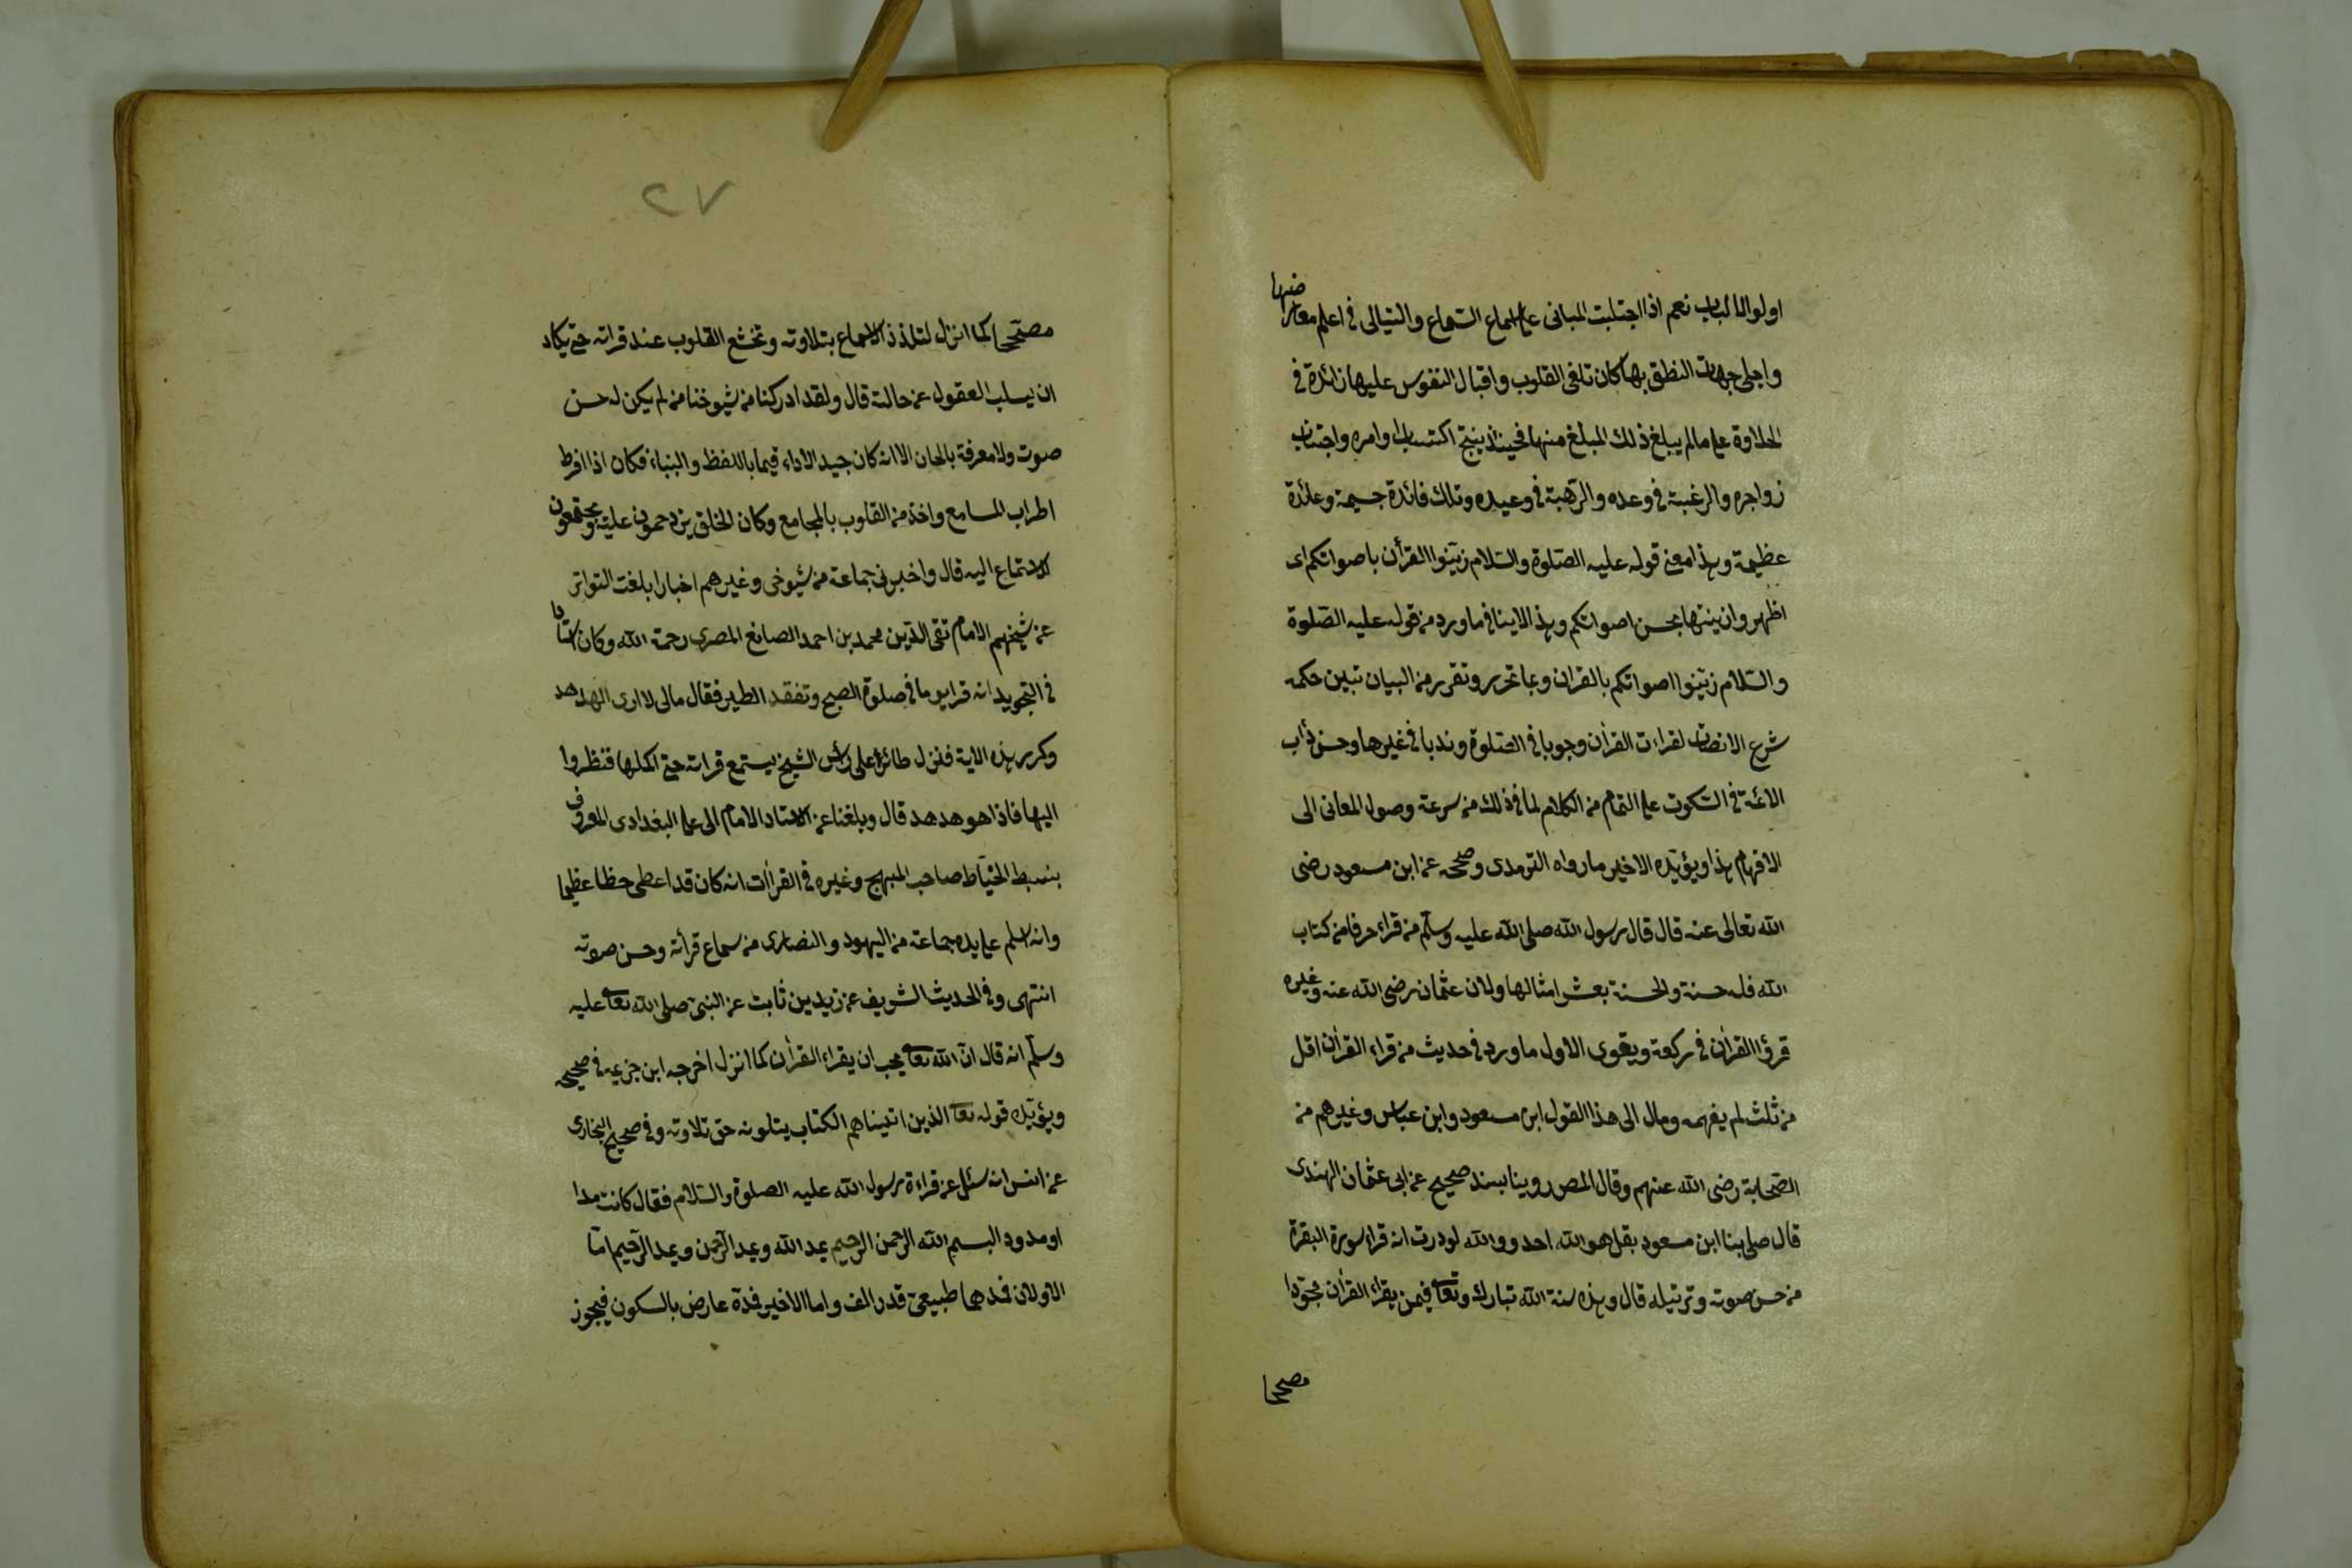 اولوا الالباب نعم اذا اجتلبت المبانى على اسماع السماع والتيالى فى اعلم معارضها
واجلى جهات النطق بها كان تلقى القلوب واقبال النفوس عليها زائدة فى
الحلاوة على ما لم يبلغ ذلك المبلغ منها فحينئذ ينتج اكتساب اوامره واجتناب
زواجره والرغبة فى وعده والرهبة فى وعيده وتلك فائدة جسيمة وعائدة
عظيمة وهذا معنى قوله عليه الصلوة والسلام زينوا القرأن باصواتكم اى
اظهروا زينتها بحسن اصواتكم وهذا لا ينافى ما ورد من قوله عليه الصلوة
والسلام زينوا اصواتكم بالقران وبما تحرر وتقرر من البيان تبين حكمه
شرع الانصات لقراءت القرأن وجوبا فى الصلوة وندبا فى غيرها وحسن دأب
الائمة فى السكوت على التمام من الكلام لما فى ذلك من سرعة وصول المعانى الى
الافهام هذا ويؤيده الاخير ما رواه الترمدى وصححه عن ابن مسعود رضى
الله تعالى عنه قال قال رسول الله صلى الله عليه وسلم من قراء حرفا من كتاب
الله فله حسنة والحسنة بعشر امثالها ولان عثمان رضى الله عنه وغيره
قرؤا القرأن فى ركعة ويقوى الاول ما ورد فى حديث من قراء القرأن اقل
من ثلث لم يفهمه ومال الى هذا القول ابن مسعود وابن عباس وغيرهم من
الصحابة رضى الله عنهم وقال المصر روينا بسند صحيح عن ابى عثمان الهندى
قال صلى بنا ابن مسعود بقل هو الله احد ووالله لوددت انه قراء سورة البقرة
من حسن صوته وترتيله قال وهذه سنة الله تبارك وتعا فيمن يقراء القرأن مجودا
مصححا
٢٧
مصححا كما انزل لتلذذ الاسماع بتلاوته وتخشع القلوب عند قراته حتى يكاد
ان يسلب العقول عن حالته قال ولقد ادركنا من شيوخنا من لم يكن له حسن
صوت ولا معرفة بالحان الا انه كان جيد الاداء قيما باللفظ والبناء فكان اذا افرط
اطراب المسامع واخذ من القلوب بالمجامع وكان الخلق يزدحمون عليه ويجتمعون
للاستماع اليه قال واخبرنى جماعة من شيوخى وغيرهم اخبارا بلغت التواتر
عن شيخهم الامام تقى الدين محمد بن احمد الصائغ المصرى رحمة الله وكان استاذا
فى التجويد انه قرا يوما فى صلوة الصبح وتفقد الطير فقال مالى لا ارى الهدهد
وكرر هذه الاية فنزل طائر على رأس الشيخ يستمع قراته حتى اكملها فنظروا
اليها فاذا هو هدهد قال وبلغنا عن الاستاد الامام الى على البغدادى المعروف
بنسبط الخياط صاحب المبهج وغيره فى القراات انه كان قد اعطى حظا عظيما
وانه اسلم على يده جماعة من اليهود والنصارى من سماع قرأته وحسن صوته
انتهى وفى الحديث الشريف عن زيد بن ثابت عن النبى صلى الله تعا عليه
وسلم انه قال ان الله تعا يحب ان يقراء القرأن كما انزل اخرجه ابن خزيمه فى صحيحه
ويؤيده قوله تعا الذين اتيناهم الكتاب يتلونه حق تلاوته وفى صحيح البخارى
عن انس انه سئل عن قراءة رسول الله عليه الصلوة والسلام فقال كانت مدا
او مدود البسم الله الرحمن الرحيم يمد الله ويمد الرحمن ويمد الرحيم اما
الاولان فمدهما طبيعى قدر الف واما الاخير فمدة عارض بالسكون فيجوز